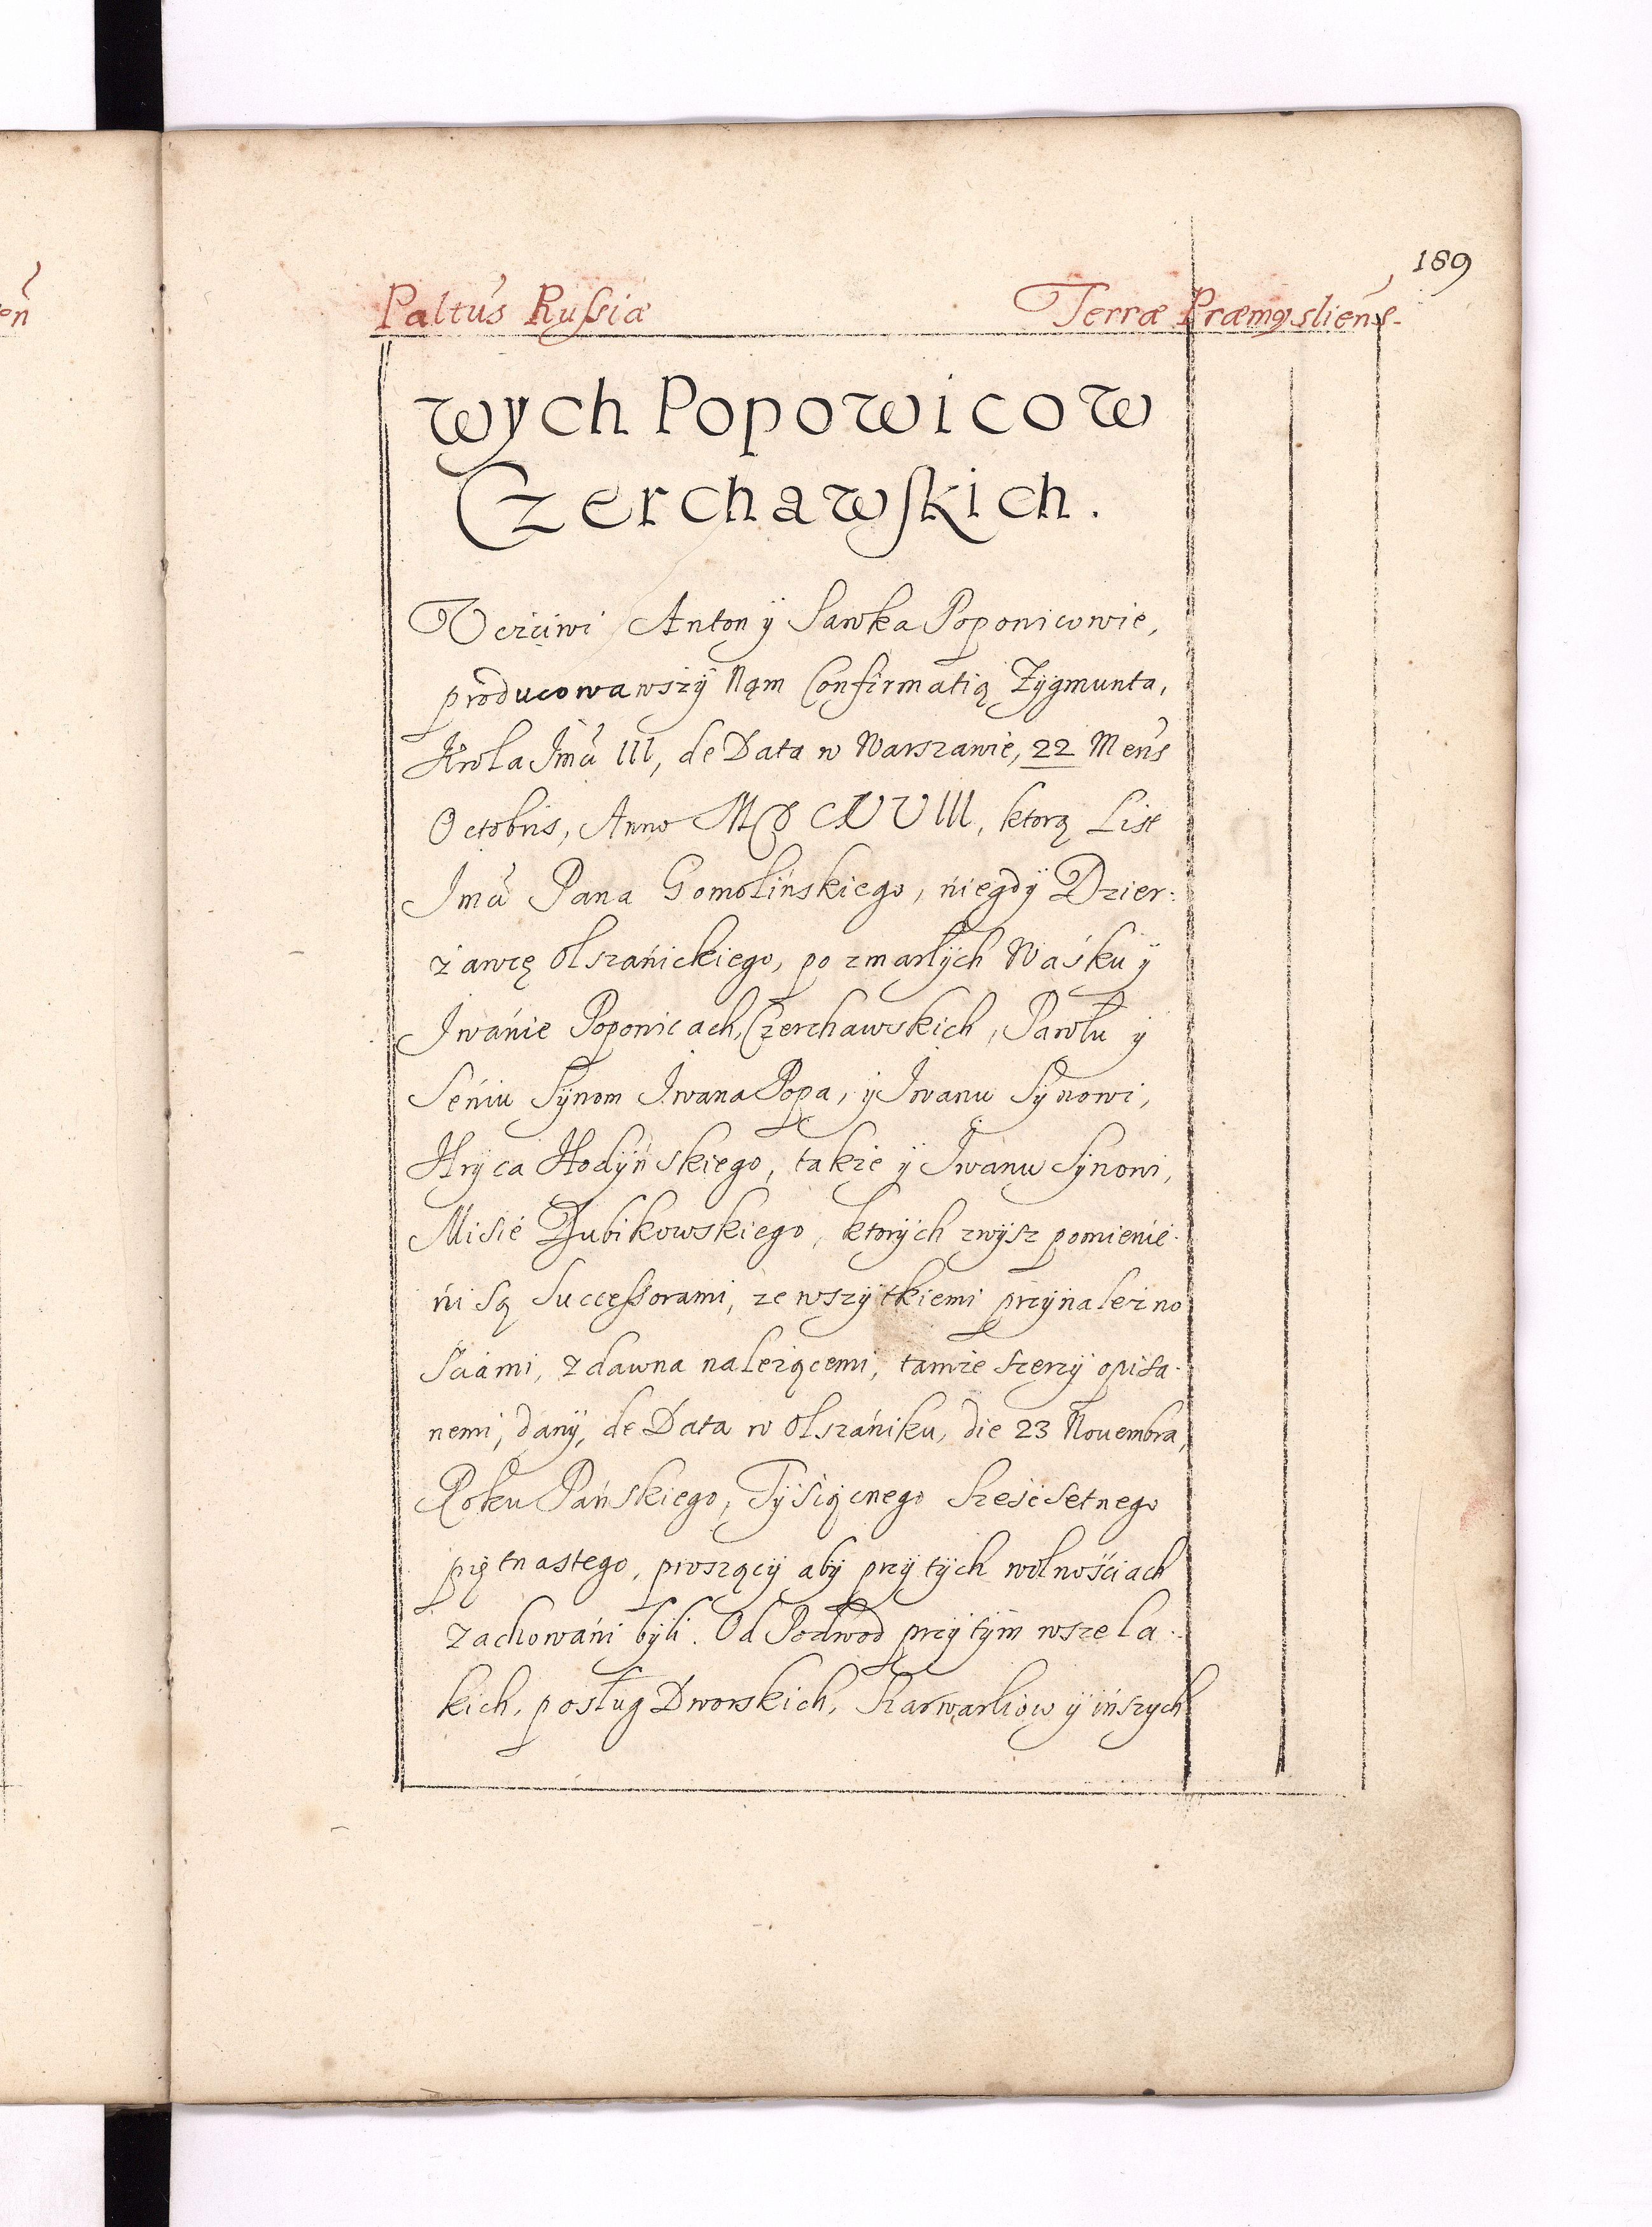 189
Paltus Russiæ Terræ Præmysliens.
wych Popowicow
Czerchawskich.
Ucżćiwi Anton y Sawka Popowicowie,
producowawszÿ Nąm Confirmatią Zÿgmunta,
Krola Jmci III, de Data w Warszawie, 22 Mens
Octobris, Anno MDCXVIII, ktorą List
Jmci Pana Gomolińskiego, ńiegdÿ Dzier:
żawcę Olszańickiego, po zmarłÿch Waśku ÿ
Iwańie Popowicach, Czerchawskich, Pawłu ÿ
Seńiu Sÿnom Iwana Popa, ÿ Iwanu Sÿnowi,
Hrÿca Hodÿńskiego, także ÿ Iwanu Sÿnowi,
Miśie Dubikowskiego, ktorÿch zwÿsz pomienie.
ńi są Successorami, ze wszÿtkiemi przÿnależno
śćiami, z dawna należącemi, tamże szerzÿ opisa.
nemi, danÿ, de Data w Olszańiku, die 23 Nouembra,
Roku Pańskiego, Tÿśiącnego Sześćsetnego
piętnastego, proszącÿ abÿ przÿ tÿch wolnośćiach
zachowańi bÿli. Od Podwod przÿ tÿm wszela.
kich, posług Dworskich, Szarwarkow ÿ ińszych